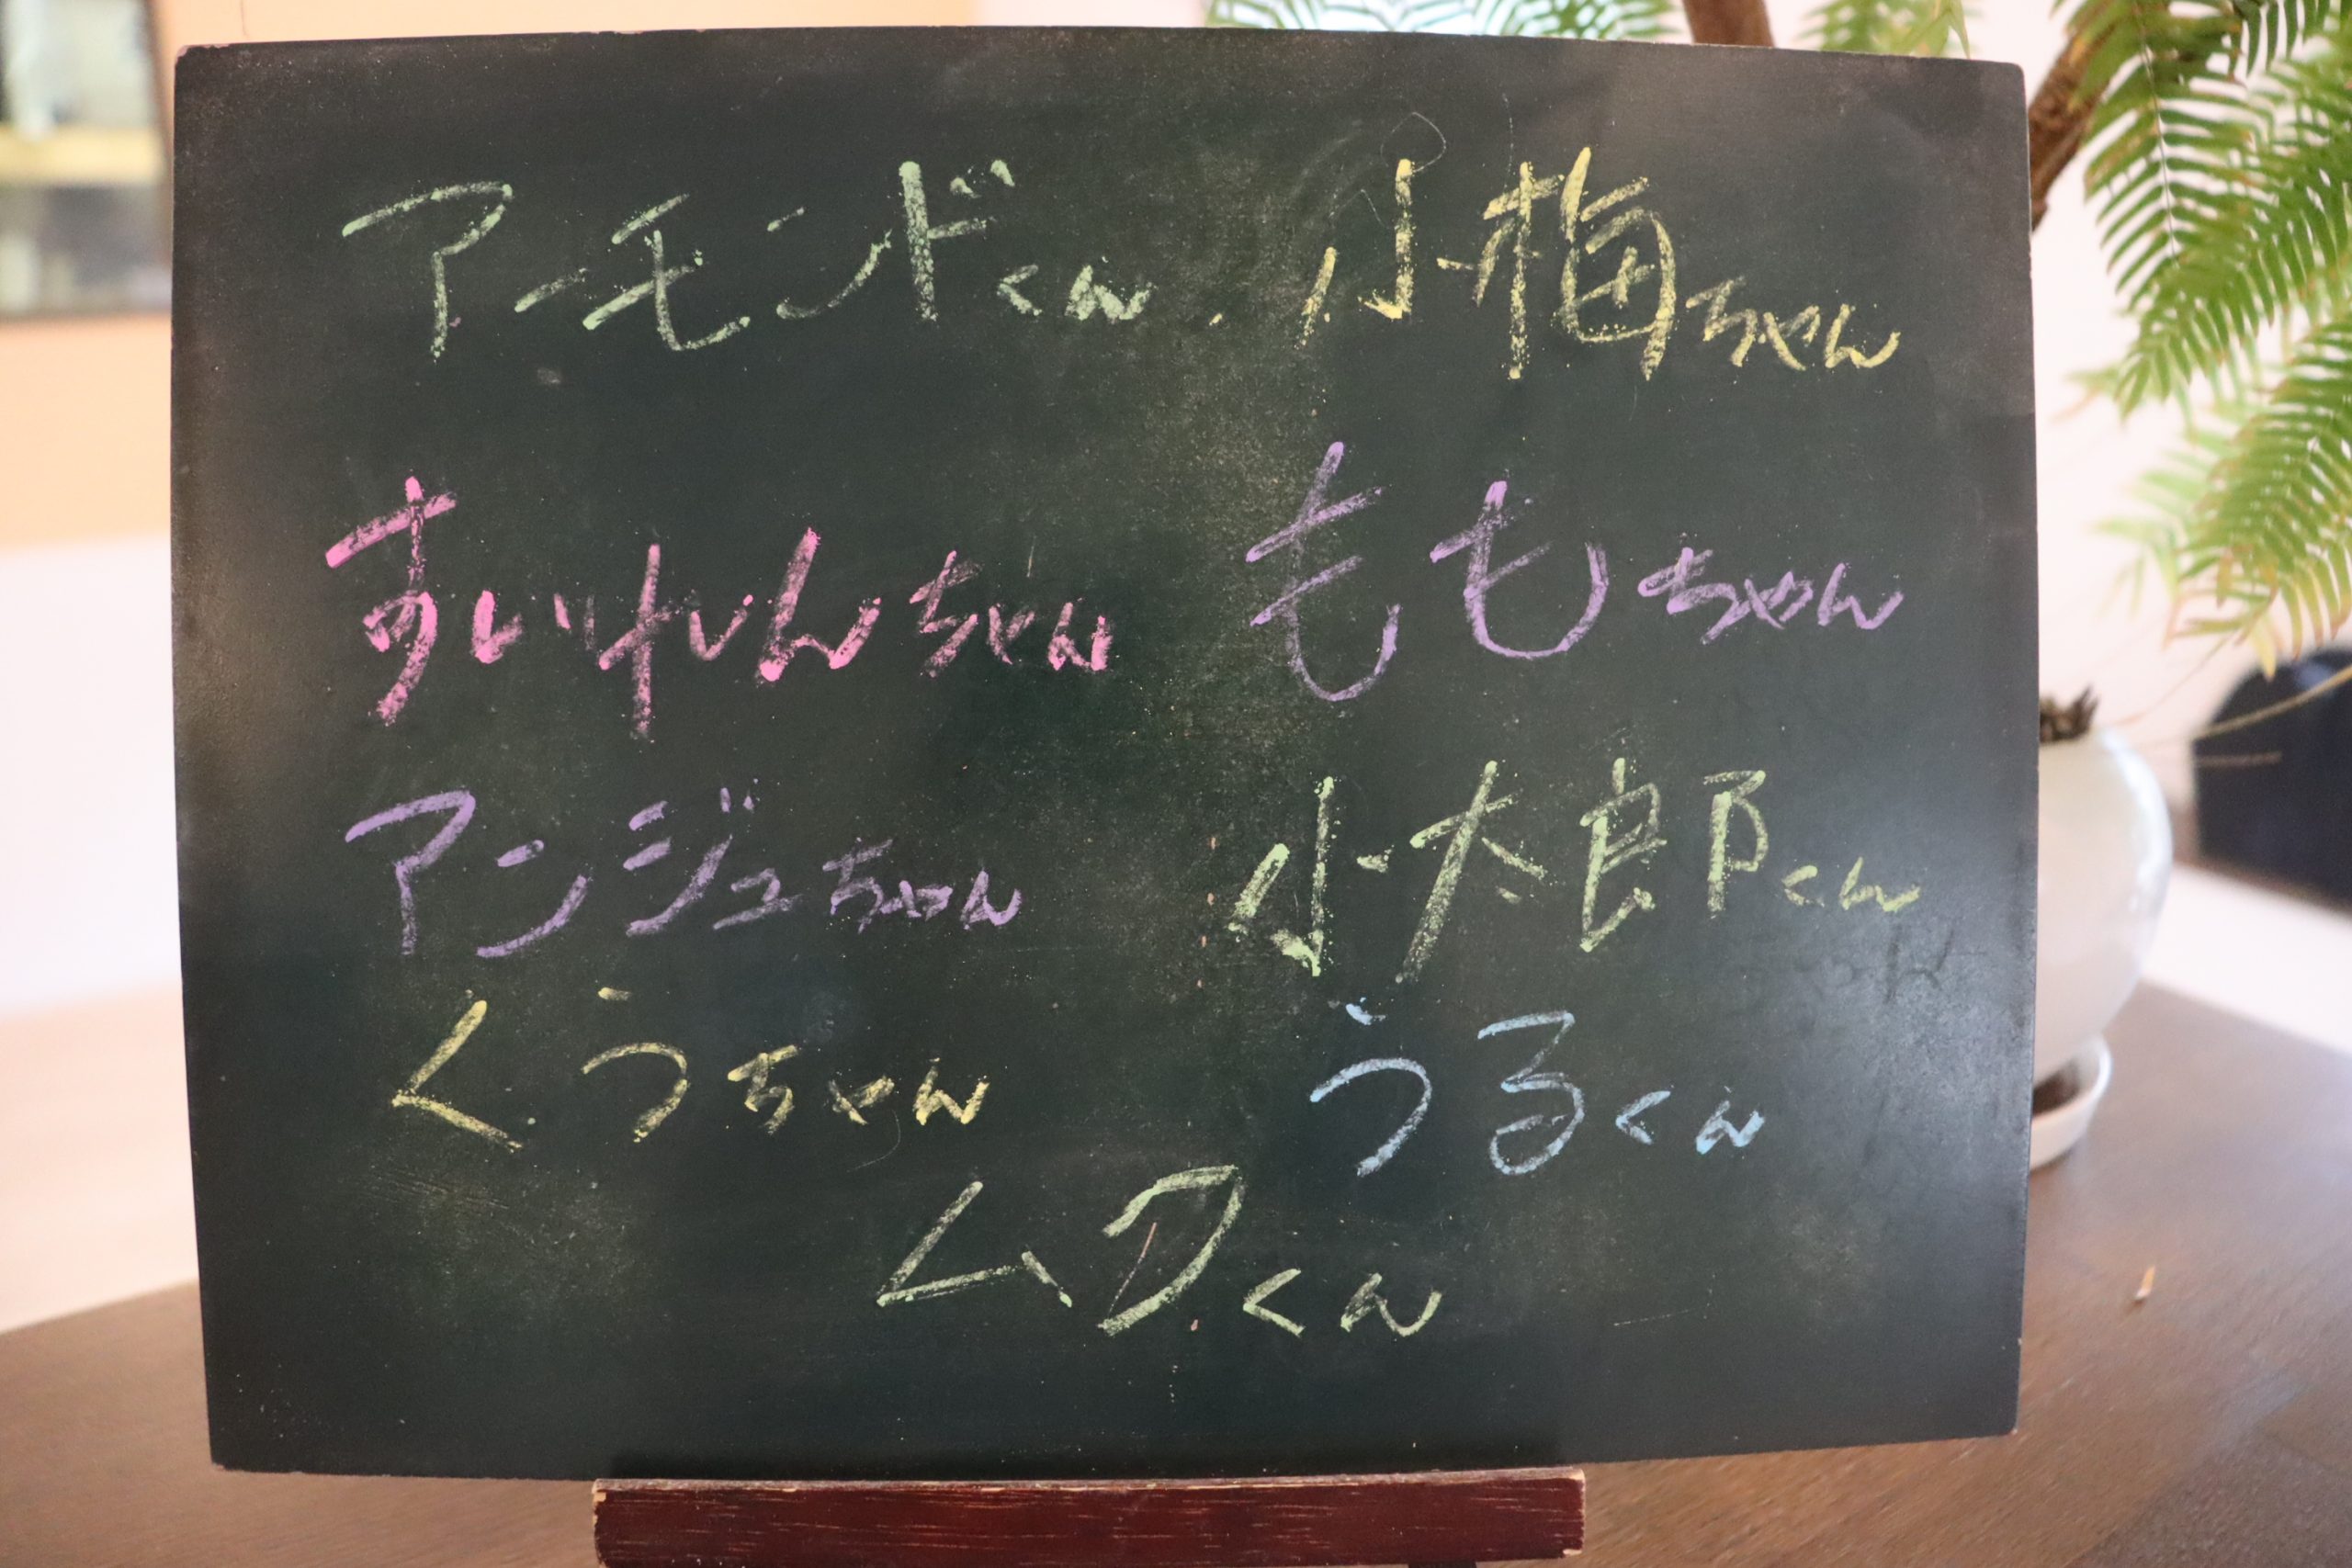 アーモンドくん 小梅ちゃん
すいれんちゃん ももちゃん
アンジュちゃん 小太郎くん
くうちゃん うるくん
ムクくん